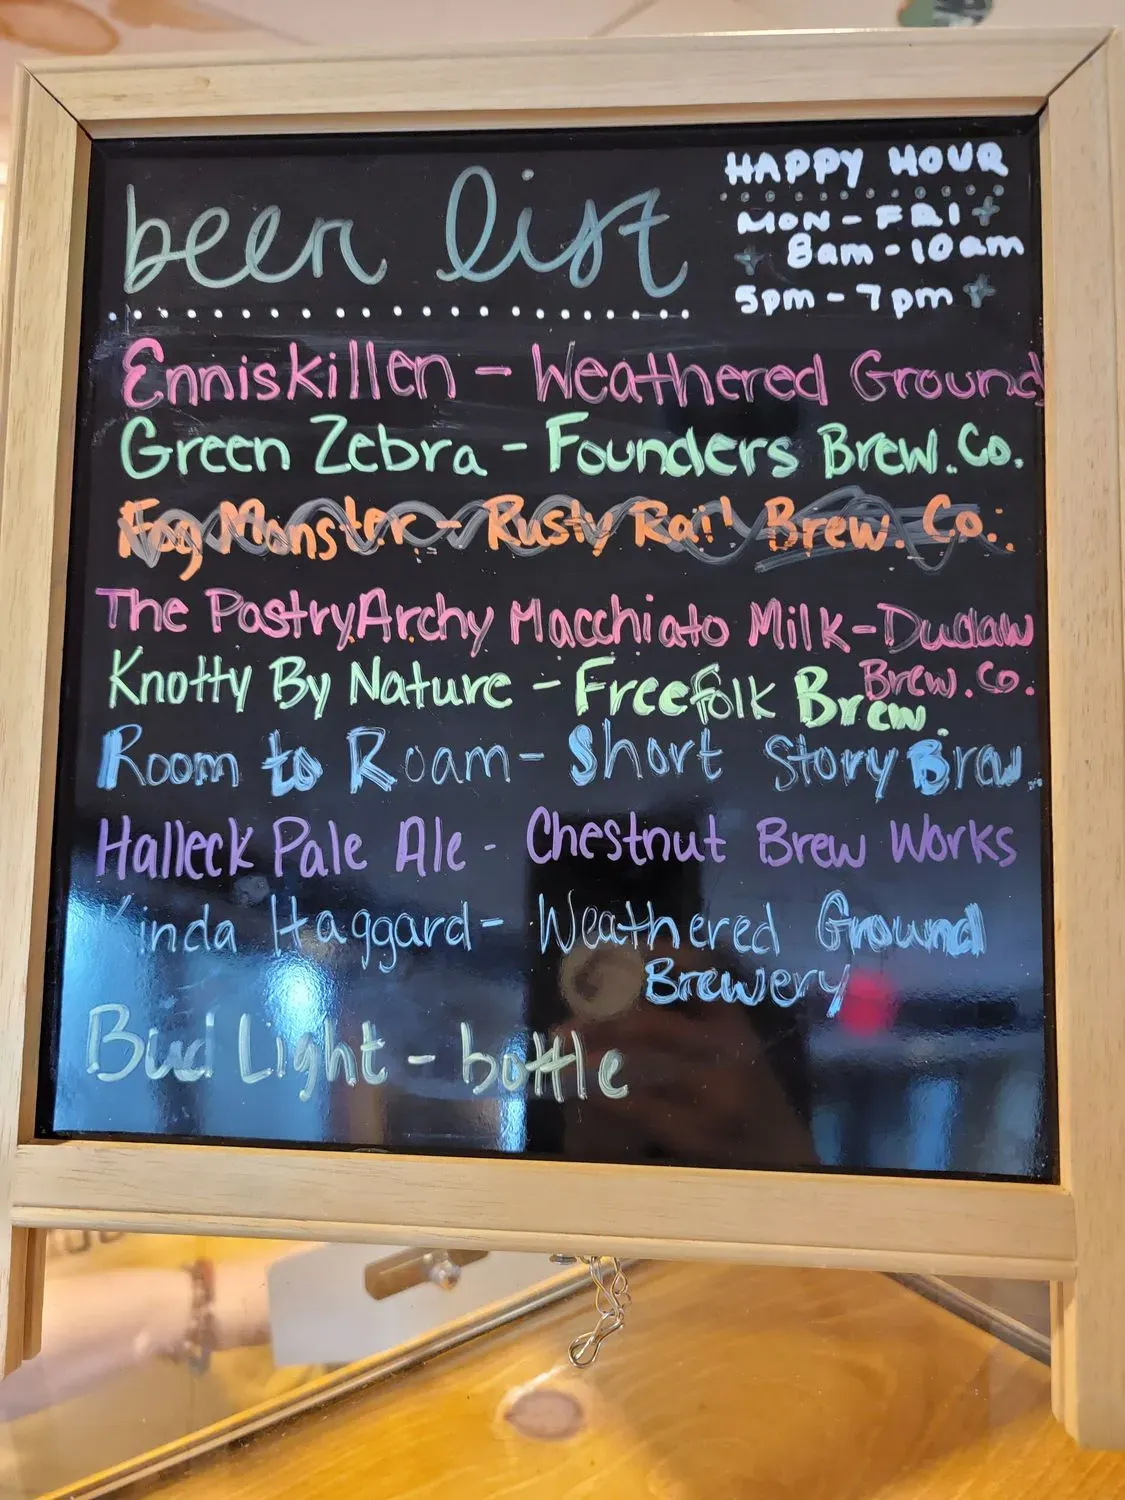 beer list
HAPPY HOUR
MON - FRI
8am - 10am
5pm - 7pm
Enniskillen - Weathered Ground
Green Zebra - Founders Brew. Co.
Fog Monster - Rusty Rail Brew. Co.
The PastryArchy Macchiato Milk - Dudaw
Brew. Co.
Knotty By Nature - Freefolk Brew.
Room to Roam - Short Story Brew.
Halleck Pale Ale - Chestnut Brew Works
Kinda Haggard - Weathered Ground
Brewery
Bud Light - bottle